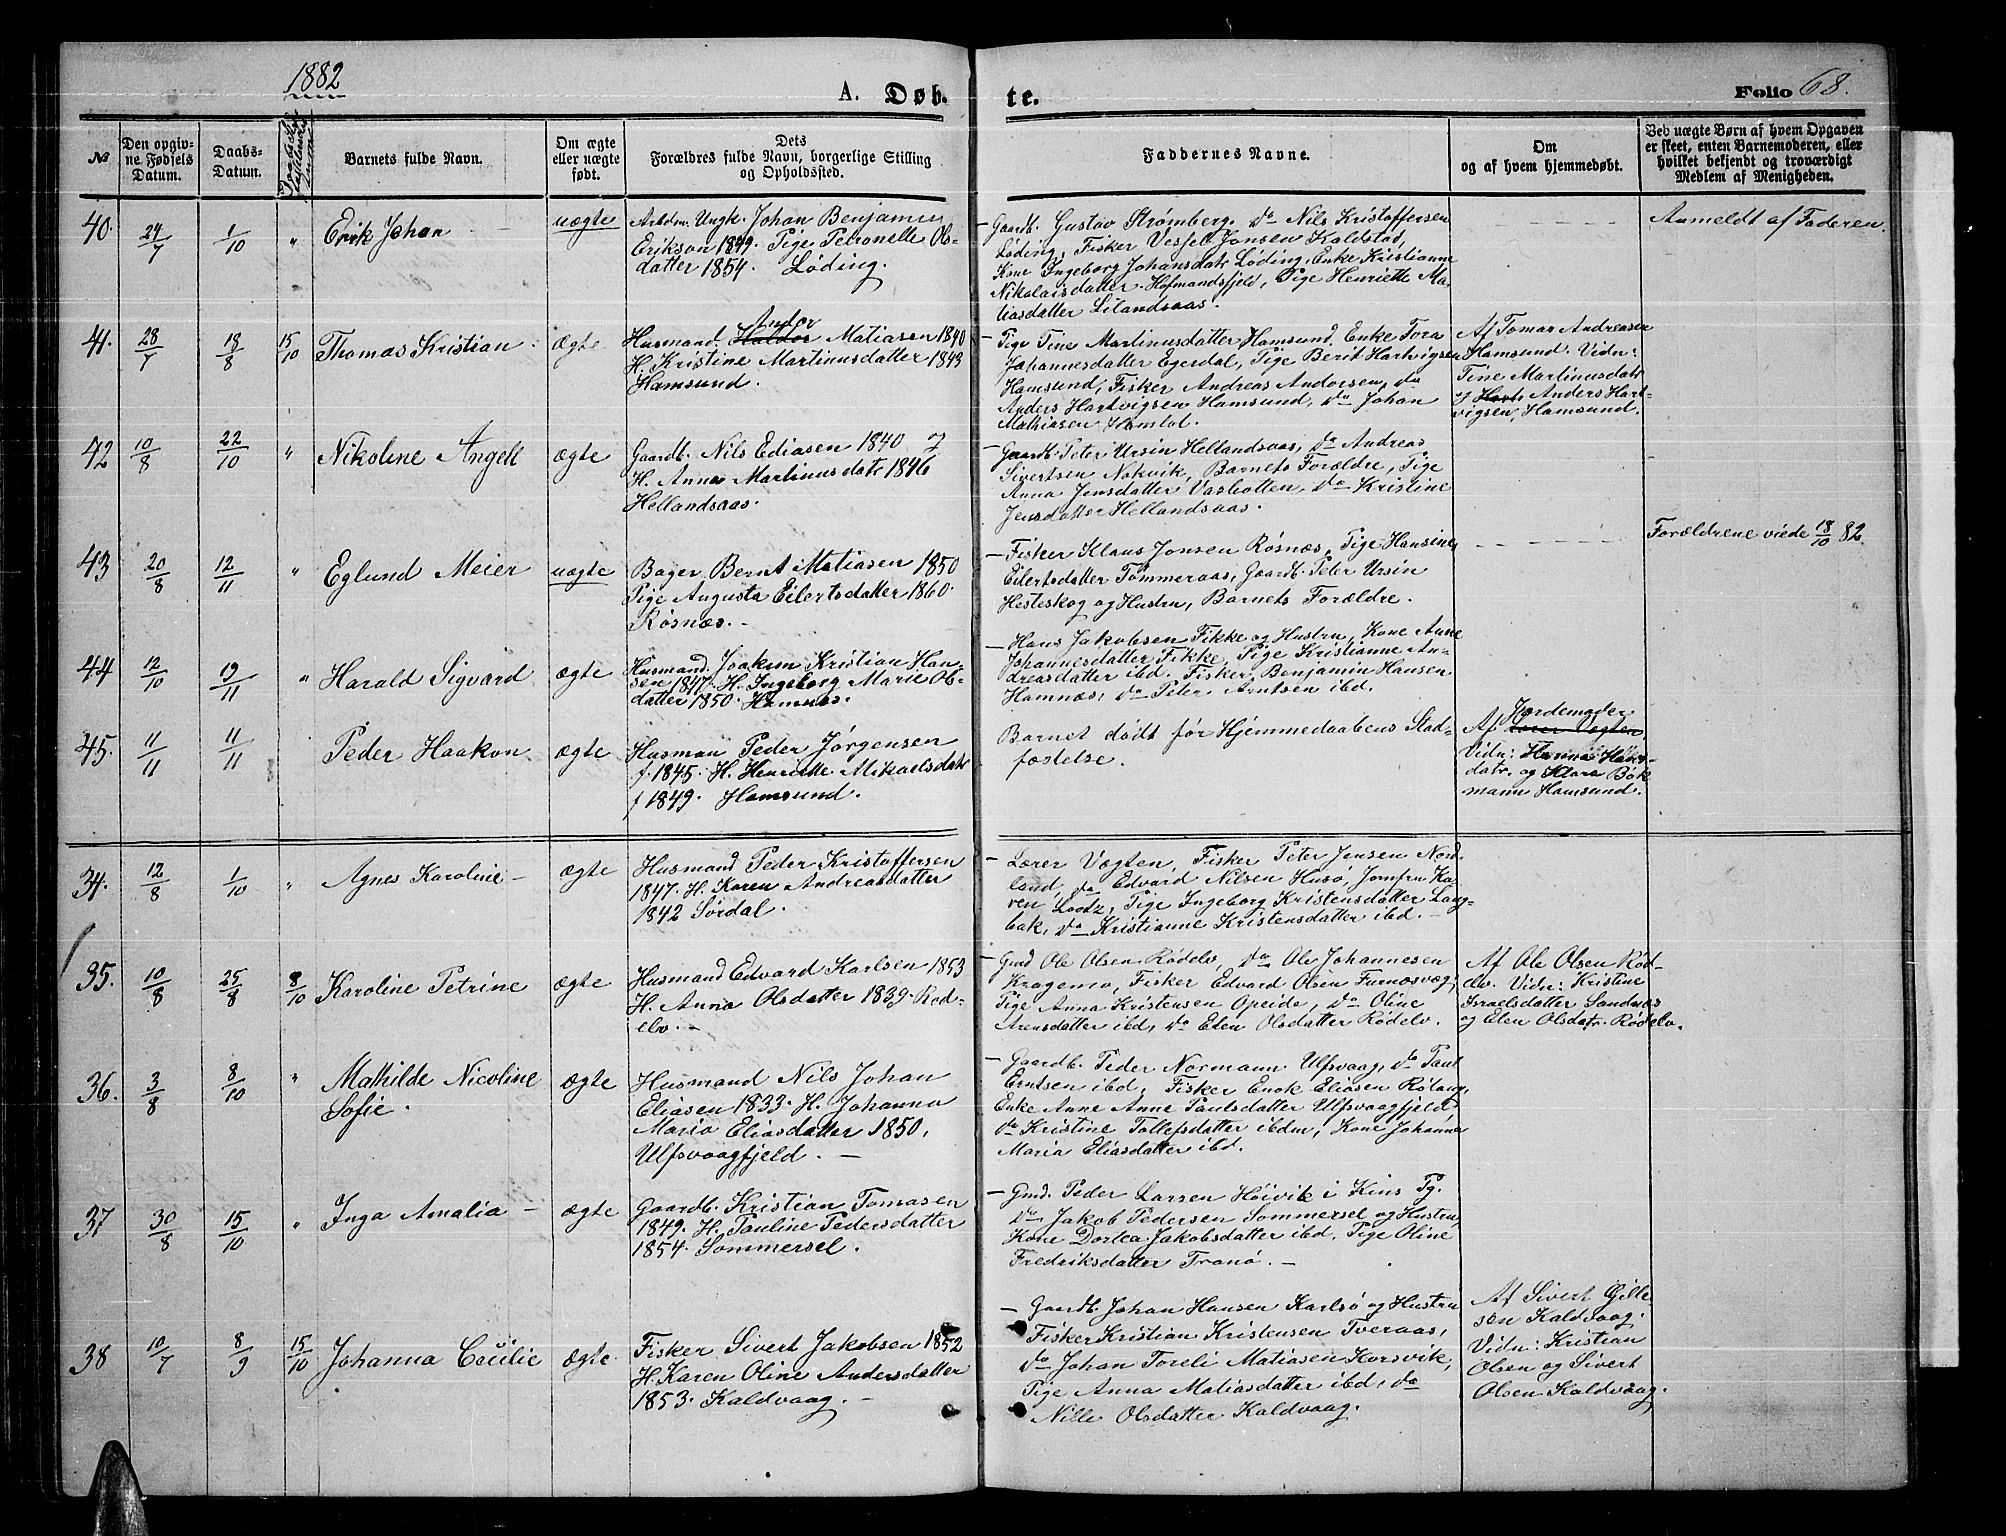 1882
A. Døb-
te.
Folio 68.
No
Den opgiv-
ne Fødsels
Datum.
Daabs-
Datum.
Barnets fulde Navn.
Om ægte
eller uægte
født.
Dets
Forældres fulde Navn, borgerlige Stilling
og Opholdssted.
Faddernes Navne.
Om
og af hvem hjemmedøbt.
Ved uægte Børn af hvem Opgaven
er skeet, enten Barnemoderen, eller
hvilket bekjendt og troværdigt
Medlem af Menigheden.
40. 24/7 1/10 " Erik Johan uægte
Arbdm. Ungk. Johan Benjamin
Erikson 1849. Pige Petronelle Ols-
datter 1854. Løding.
- Gaardb. Gustav Strømberg. do Nils Kristoffersen
Løding, Fisker Vessel Jonsen Kaldstad,
Kone Ingeborg Johansdatr Løding, Enke Kristianne
Nikolaisdatter Hofmandsfjeld, Pige Henriette Ma-
tiasdatter Lilandsaas.
Anmeldt af Faderen.
41. 28/7 18/8 15/10 Thomas Kristian ægte
Andor
Husmand Haldor Matiasen 1840
H. Kristine Martinusdatter 1843
Hamsund.
- Pige Tine Martinusdatter Hamsund. Enke Tora
Johannesdatter Egerdal, Pige Berit Hartvigsen
Hamsund, Fisker Andreas Andorsen, do
Anders Hartvigsen Hamsund, do Johan
Mathiasen Hamtol.
Af Tomas Andreasen
Hamsund. Vidn:
Tine Martinusdatr
og Anders Hart-
vigsen, Hamsund.
42 10/8 22/10 " Nikoline Angell ægte
Gaardb. Nils Ediasen 1840
H. Anna Martinusdatr 1846
Hellandsaas.
- Gaardb. Peter Ursin Hellandsaas, do Andreas
Sivertsen Nokvik, Barnets Forældre, Pige
Anna Jensdatter Vasbotten, do Kristine
Jensdatter Hellandsaas.
43 20/8 12/11 " Eglund Meier uægte
Bager Bernt Matiasen 1850
Pige Augusta Eilertsdatter 1860.
Røsnæs.
- Fisker Klaus Jonsen Røsnæs, Pige Hansine
Eilertsdatter Tømmeraas, Gaardb. Peter Ursin
Hesteskog og Hustru, Barnets Forældre.
Forældrene viede 18/10 82.
44 12/10 19/11 " Harald Sigvard ægte
Husmand. Joakim Kristian Han-
sen 1847. H. Ingeborg Marie Ols-
datter 1850. Hamnæs.
- Hans Jakobsen Fikke og Hustru, Kone Anne
Johannesdatter Fikke, Pige Kristianne An-
dreasdatter ibd. Fisker Benjamin Hansen
Hamnæs, do Peter Arntsen ibd.
45. 11/11 11/11 Peder Haakon ægte
Husman Peder Jørgensen
f. 1845. H. Henriette Mikaelsdatr
f 1849. Hamsund.
Barnet dødt før Hjemmedaabens Stad-
fæstelse.
Jordemoder
Af Lærer Vogten
Vidn: Hanna Hans-
datr. og Klara Bøk-
mann Hamsund.
34. 12/8 1/10 " Agnes Karoline - ægte
Husmand Peder Kristoffersen
1847. H. Karen Andreasdatter
1842 Sørdal.
- Lærer Vogten, Fisker Peter Jensen Nord-
land, do Edvard Nilsen Husø, Jomfru Ka-
ren Lootz, Pige Ingeborg Kristensdatter Lang-
bak, do Kristianne Kristensdatter ibd.
35. 10/8 25/8 8/10 Karoline Petrine ægte
Husmand Edvard Karlsen 1853
H. Anna Olsdatter 1839. Rød-
elv.
- Gmd Ole Olsen Rødelv, do Ole Johannesen
Kragemo, Fisker Edvard Olsen Furnæsvæg,
Pige Anna Kristensen Opeide, do Oline
Arensdatter ibd, do Elen Olsdatter Rødelv.
Af Ole Olsen Rød-
elv. Vidn: Kristine
Israelsdatter Sandnæs
og Elen Olsdatr. Rødelv.
36. 3/8 8/10 " Mathilde Nicoline
Sofie. ægte
Husmand Nils Johan
Eliasen 1833. H. Johanna
Maria Eliasdatter 1850.
Ulfsvaagfjeld.
- Gaardb. Peder Normann Ulfsvaag, do Paul
Erntsen ibd, Fisker Enok Eliasen Røtang,
Enke Anne Anne Paulsdatter Ulfsvaagfjeld
do Kristine Tollefsdatter ibdm, Kone Johanna
Maria Eliasdatter ibd.
37 30/8 15/10 " Inga Amalia - ægte
Gaardb. Kristian Tomasen
1849. H. Pauline Pedersdatter
1854. Sommersel.
- Gmd. Peder Larsen Høivik i Kins Pg.
do Jakob Pedersen Sommersel og Hustru,
Kone Dortea Jakobsdatter ibd, Pige Oline
Fredriksdatter Tranø.
38 10/7 8/9 15/10 Johanna Cecilie ægte.
Fisker Sivert Jakobsen 1852
H. Karen Oline Andersdatter
1853. Kaldvaag.
- Gaardb. Johan Hansen Karlsø og Hustru
Fisker Kristian Kristensen Tveraas,
do Johan Toreli Matiasen Korsvik,
Pige Anna Matiasdatter ibd, do
Nille Olsdatter Kaldvaag.
Af Sivert Gille-
sen Kaldvaag.
Vidn: Kristian
Olsen og Sivert
Olsen Kaldvaag.